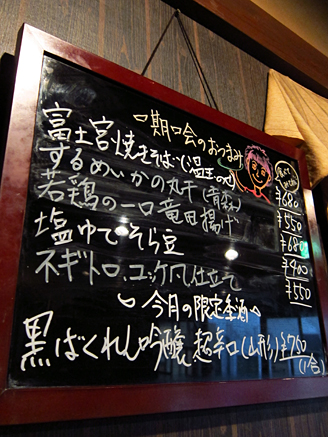 一期一会のおつまみ
富士宮焼きそば(温玉のせ) ¥680
するめいかの丸干(青森) ¥550
若鶏の一口竜田揚げ ¥680
塩ゆでそら豆 ¥400
ネギトロ、ユッケ風仕立て ¥550
今月の限定季酒
黒ばくれん吟醸 超辛口(山形) ¥750
(1合)